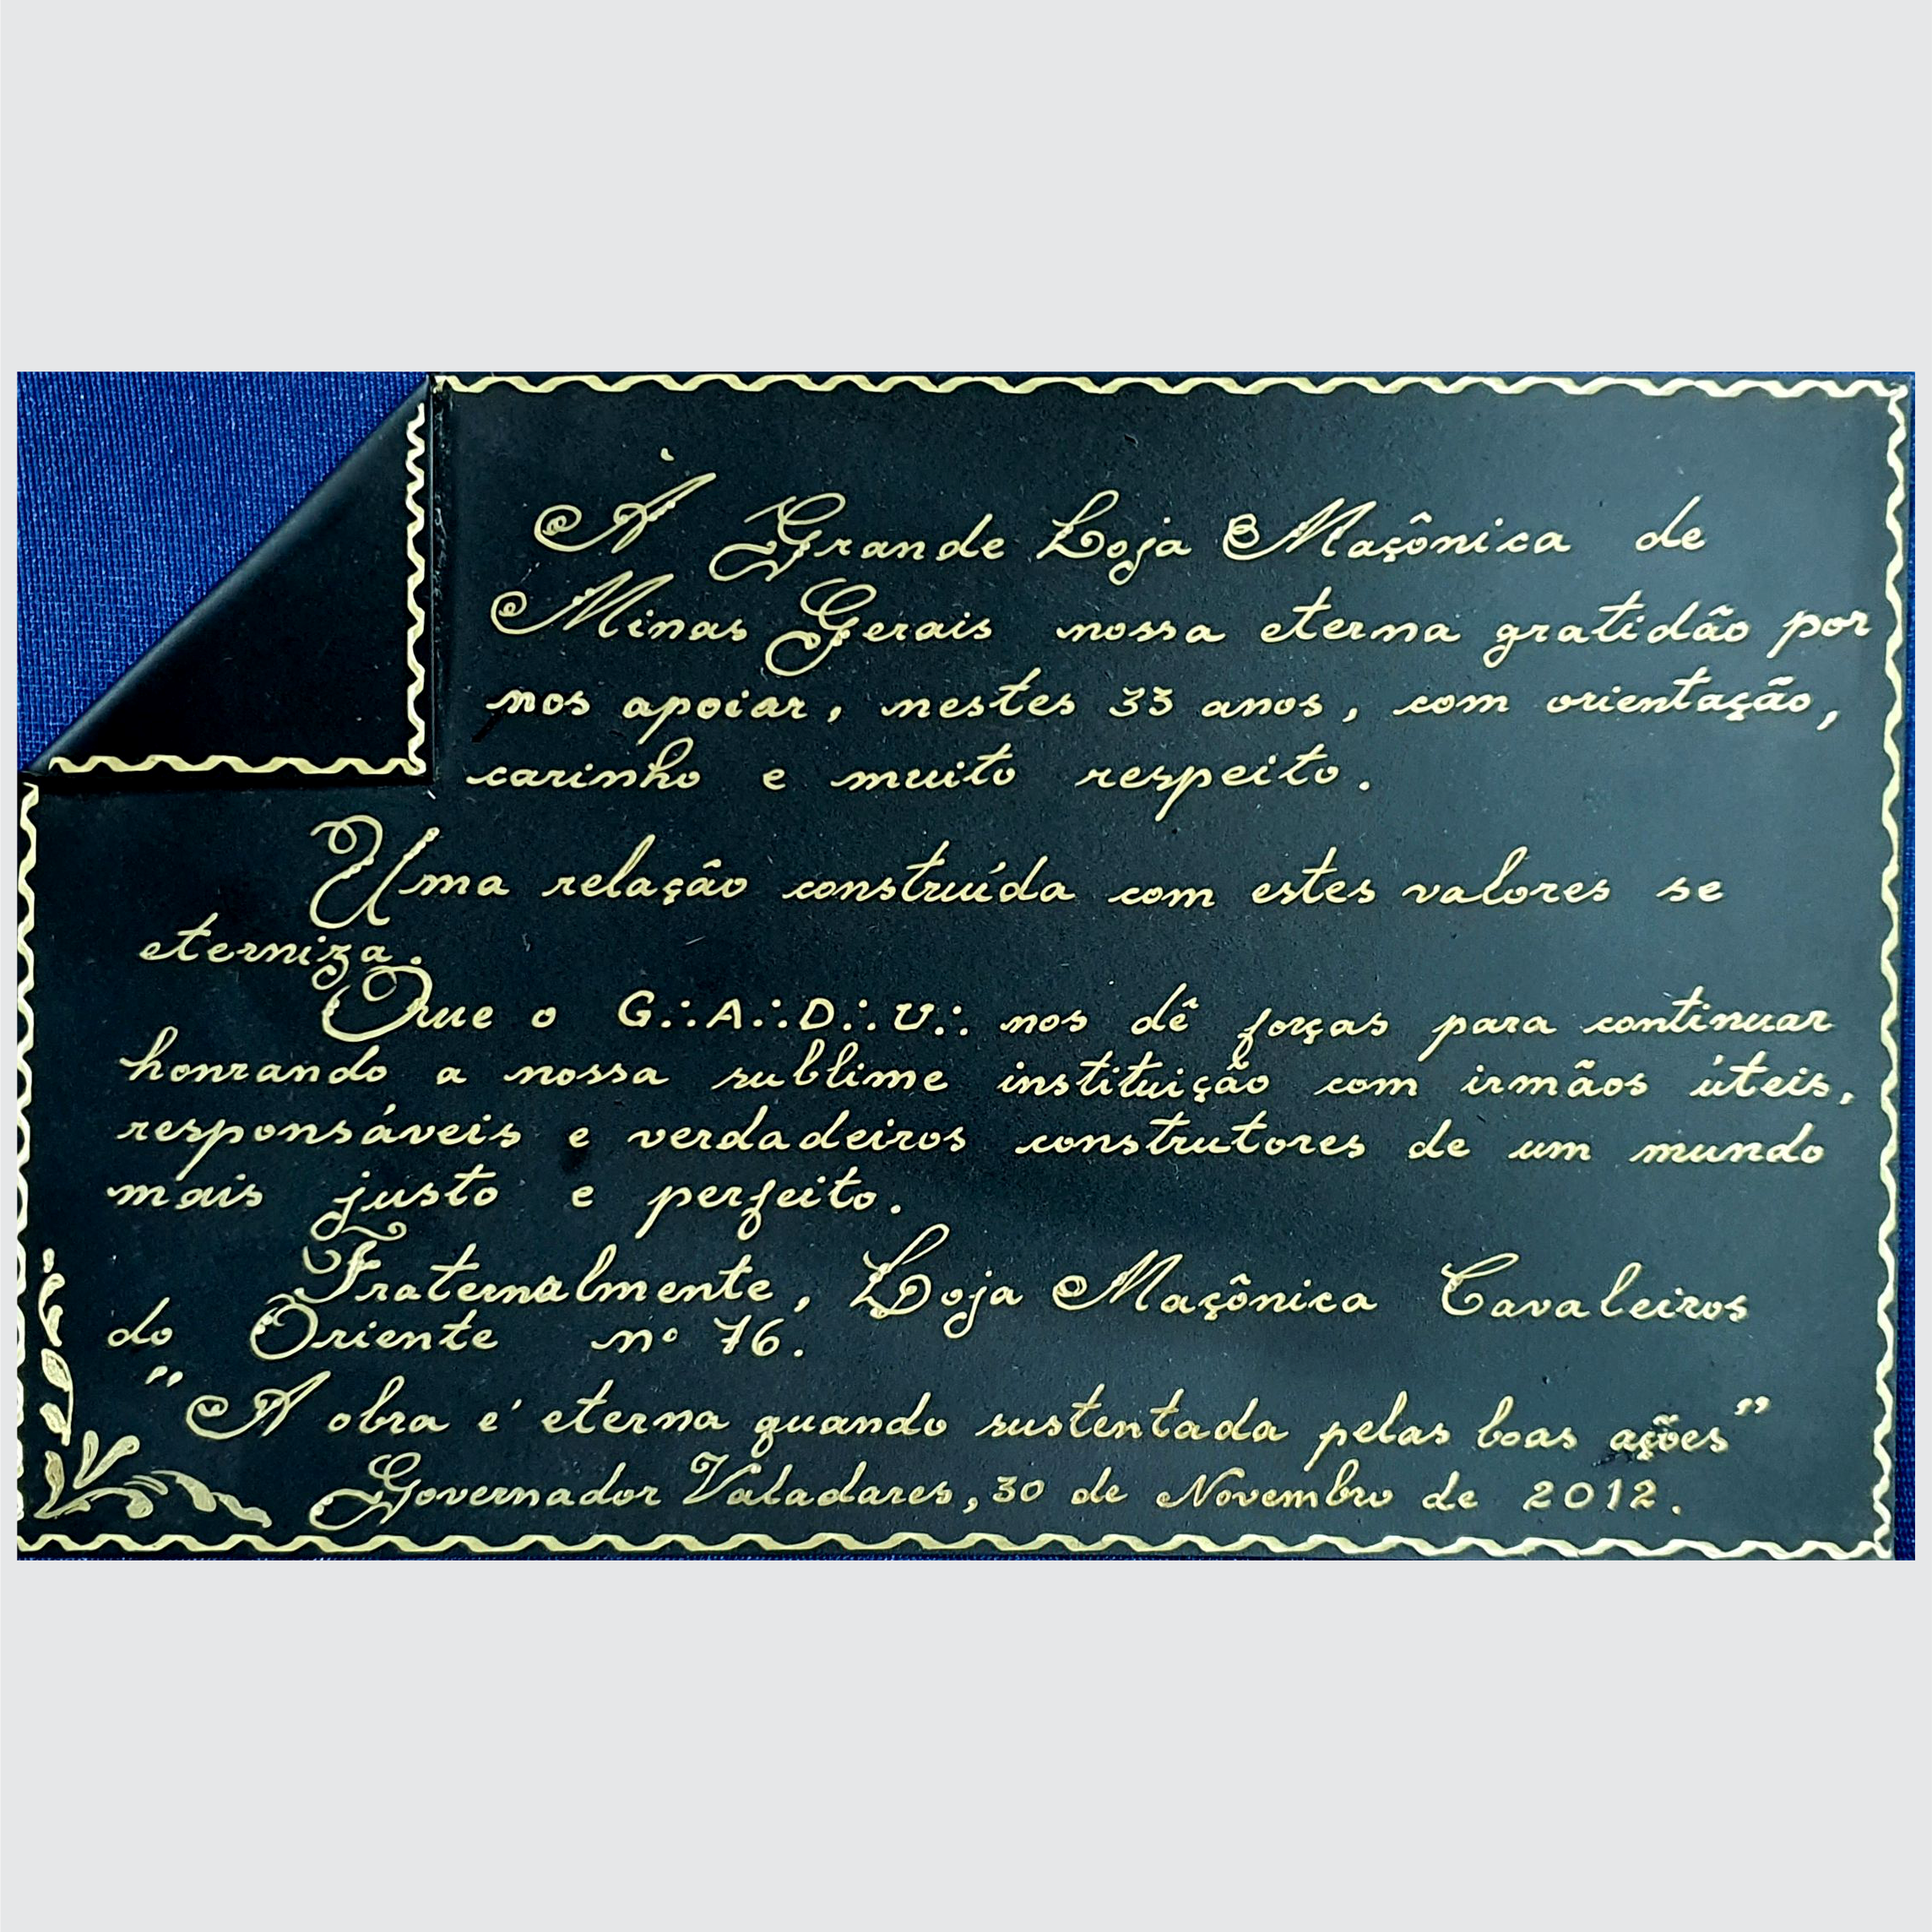 À Grande Loja Maçônica de
Minas Gerais nossa eterna gratidão por
nos apoiar, nestes 33 anos, com orientação,
carinho e muito respeito.
Uma relação construída com estes valores se
eterniza.
Que o G∴A∴D∴U∴ nos dê forças para continuar
honrando a nossa sublime instituição com irmãos úteis,
responsáveis e verdadeiros construtores de um mundo
mais justo e perfeito.
Fraternalmente, Loja Maçônica Cavaleiros
do Oriente nº 76.
"A obra é eterna quando sustentada pelas boas ações"
Governador Valadares, 30 de Novembro de 2012.